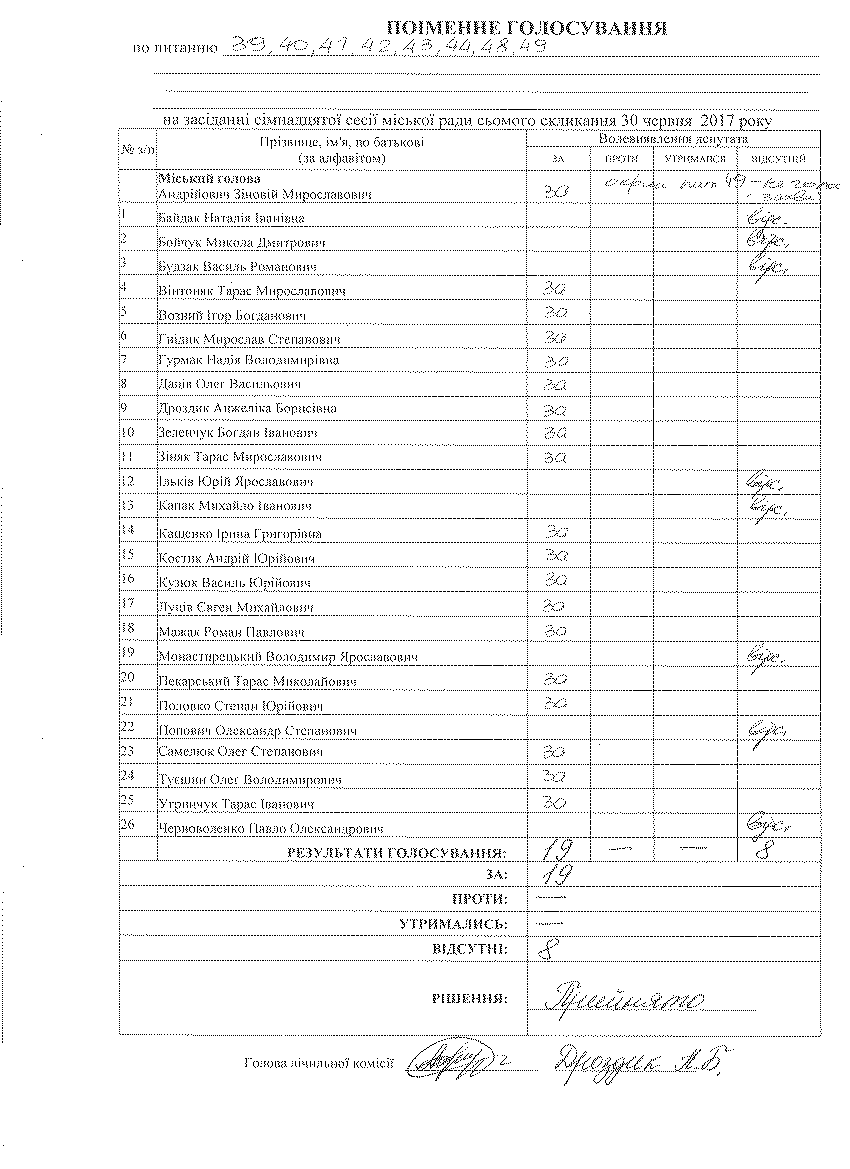 ПОІМЕННЕ ГОЛОСУВАННЯ
по питанню 39, 40, 41, 42, 43, 44, 48, 49
на засіданні сімнадцятої сесії міської ради сьомого скликання 30 червня 2017 року
№ з/п Прізвище, ім'я, по батькові (за алфавітом) Волевиявлення депутата
ЗА ПРОТИ УТРИМАВСЯ ВІДСУТНІЙ
Міський голова
Андрійович Зіновій Мирославович за окрім пит 49 – не голос.
1 Байдак Наталія Іванівна відс.
2 Бойчук Микола Дмитрович відс.
3 Будзак Василь Романович відс.
4 Вінтоняк Тарас Мирославович за
5 Возний Ігор Богданович за
6 Гнідик Мирослав Степанович за
7 Гурмак Надія Володимирівна за
8 Даців Олег Васильович за
9 Дроздик Анжеліка Борисівна за
10 Зеленчук Богдан Іванович за
11 Зіняк Тарас Мирославович за
12 Ільків Юрій Ярославович відс.
13 Капак Михайло Іванович відс.
14 Кащенко Ірина Григорівна за
15 Костик Андрій Юрійович за
16 Кузюк Василь Юрійович за
17 Луців Євген Михайлович за
18 Мажак Роман Павлович за
19 Монастирецький Володимир Ярославович відс.
20 Пекарський Тарас Миколайович за
21 Половко Степан Юрійович за
22 Попович Олександр Степанович відс.
23 Самелюк Олег Степанович за
24 Туєшин Олег Володимирович за
25 Угринчук Тарас Іванович за
26 Черноволенко Павло Олександрович відс.
РЕЗУЛЬТАТИ ГОЛОСУВАННЯ: 19 — — 8
ЗА: 19
ПРОТИ: —
УТРИМАЛИСЬ: —
ВІДСУТНІ: 8
РІШЕННЯ: Прийнято
Голова лічильної комісії Дроздик А.Б.